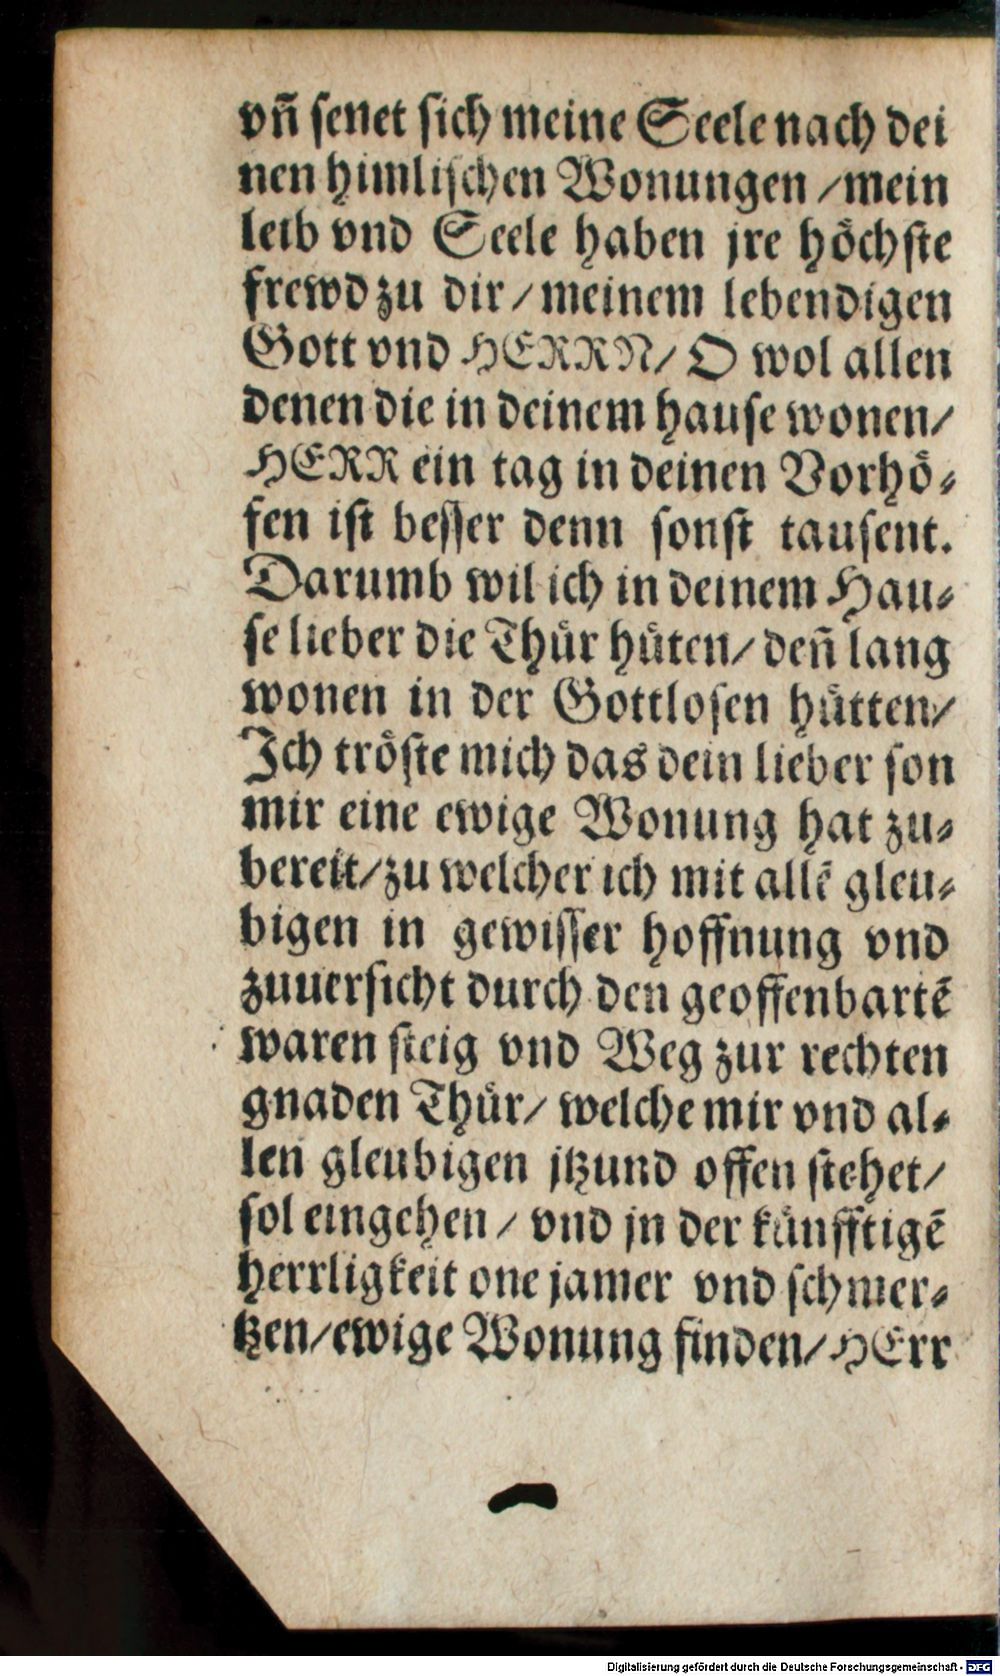 vñ senet sich meine Seele nach dei
nen himlischen Wonungen / mein
leib vnd Seele haben jre höchste
frewd zu dir / meinem lebendigen
Gott vnd HERRN / O wol allen
denen die in deinem hause wonen /
HERR ein tag in deinen Vorhö-
fen ist besser denn sonst tausent.
Darumb wil ich in deinem Hau-
se lieber die Thür hüten / deñ lang
wonen in der Gottlosen hütten /
Ich tröste mich das dein lieber son
mir eine ewige Wonung hat zu-
bereit / zu welcher ich mit allẽ gleu-
bigen in gewisser hoffnung vnd
zuuersicht durch den geoffenbartẽ
waren steig vnd Weg zur rechten
gnaden Thür / welche mir vnd al-
len gleubigen jtzund offen stehet /
sol eingehen / vnd jn der künfftigẽ
herrligkeit one jamer vnd schmer-
tzen / ewige Wonung finden / HErr
Digitalisierung gefördert durch die Deutsche Forschungsgemeinschaft - DFG